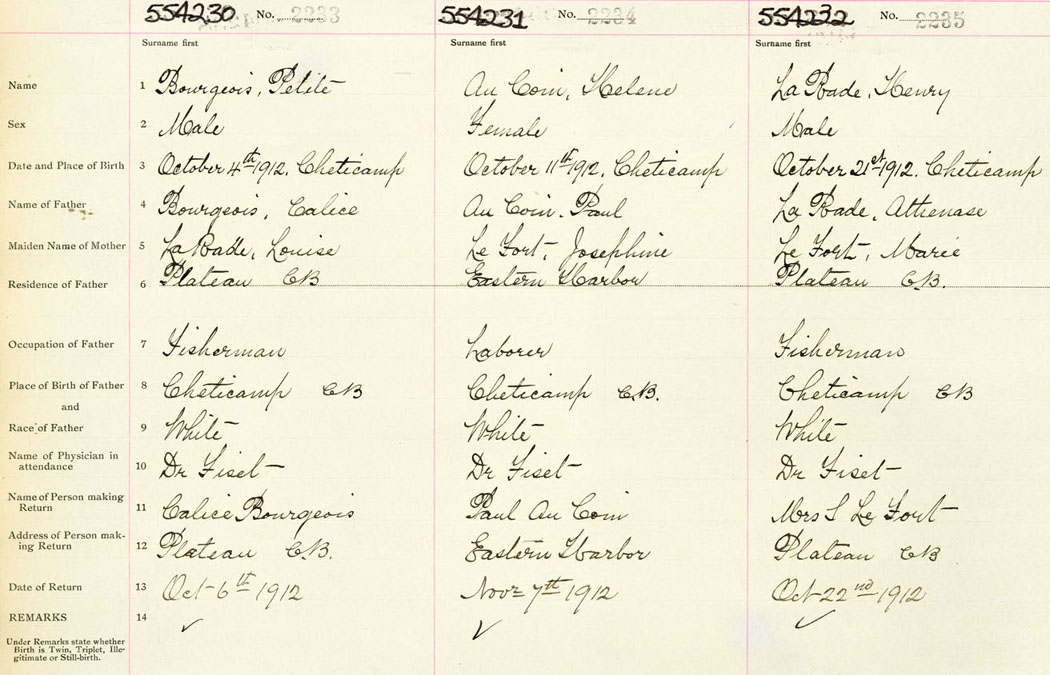 554230 No. 2233 554231 No. 2234 554232 No. 2235
Surname first Surname first Surname first
Name 1 Bourgeois, Petite Au Coin, Helene La Bade, Henry
Sex 2 Male Female Male
Date and Place of Birth 3 October 4th 1912, Cheticamp October 11th 1912, Cheticamp October 21st 1912. Cheticamp
Name of Father 4 Bourgeois, Calice Au Coin, Paul La Bade, Athenase
Maiden Name of Mother 5 La Bade, Louise Le Fort, Josephine Le Fort, Marie
Residence of Father 6 Plateau CB Eastern Harbor Plateau C.B.
Occupation of Father 7 Fisherman Laborer Fisherman
Place of Birth of Father 8 Cheticamp CB Cheticamp C.B. Cheticamp CB
and
Race of Father 9 White White White
Name of Physician in
attendance 10 Dr Fiset Dr Fiset Dr Fiset
Name of Person making
Return 11 Calice Bourgeois Paul Au Coin Mrs S Le Fort
Address of Person mak-
ing Return 12 Plateau C.B. Eastern Harbor Plateau CB
Date of Return 13 Oct 6th 1912 Nov 7th 1912 Oct 22nd 1912
REMARKS 14
Under Remarks state whether
Birth is Twin, Triplet, Ille-
gitimate or Still-birth.